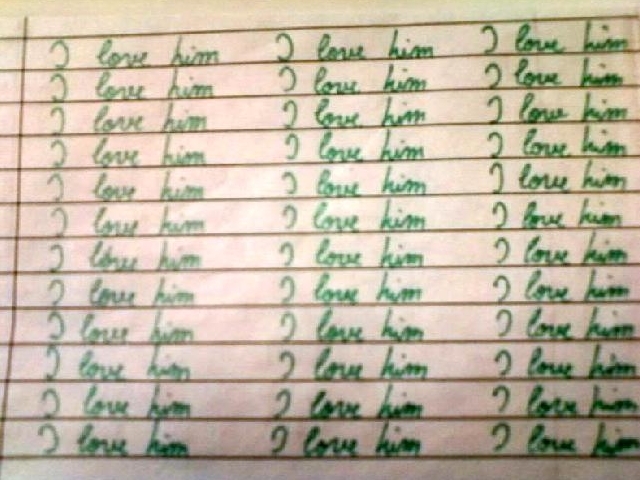 I love him I love him I love him
I love him I love him I love him
I love him I love him I love him
I love him I love him I love him
I love him I love him I love him
I love him I love him I love him
I love him I love him I love him
I love him I love him I love him
I love him I love him I love him
I love him I love him I love him
I love him I love him I love him
I love him I love him I love him